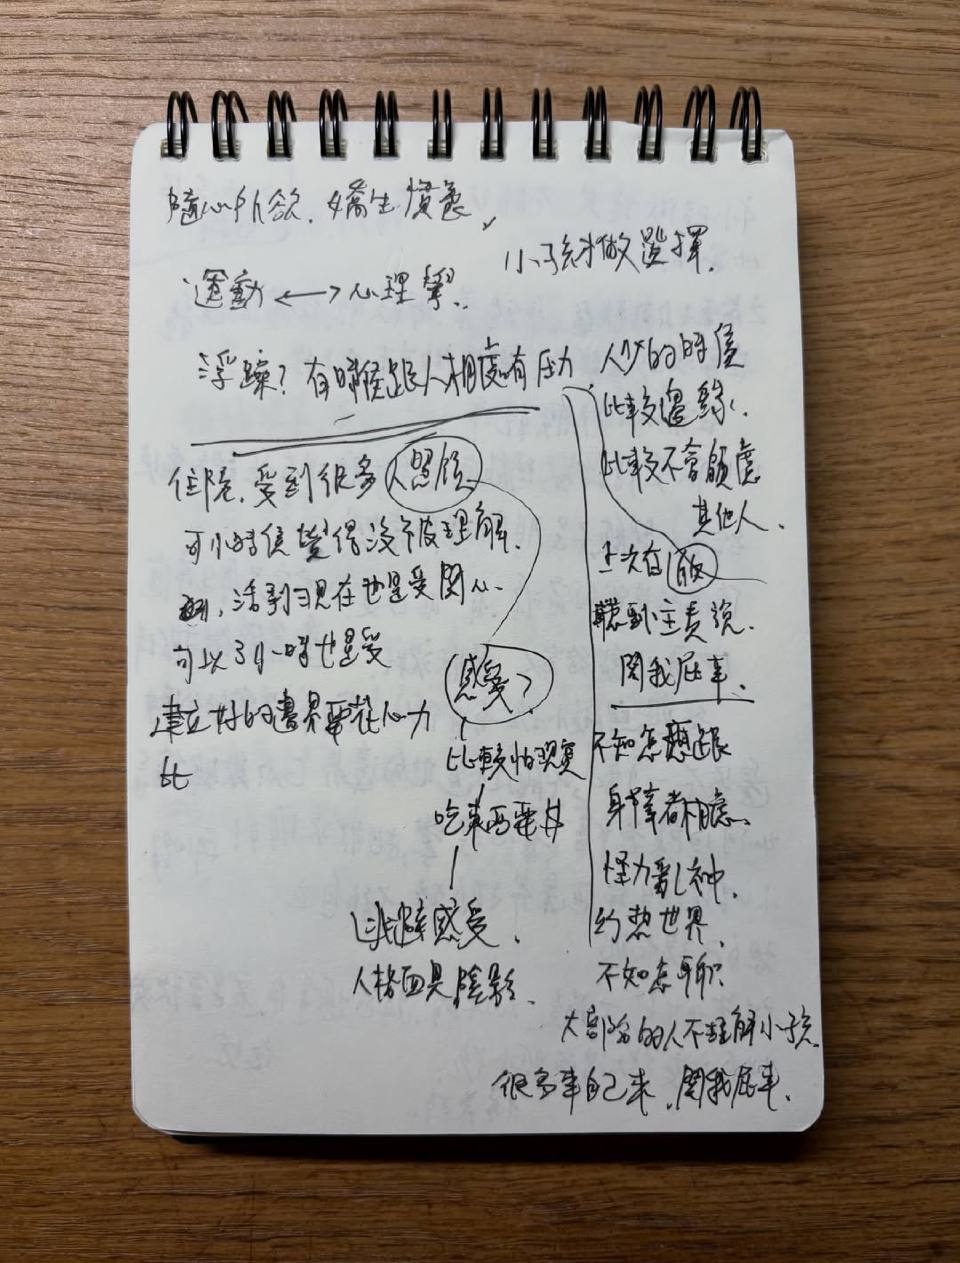 隨心所欲.嬌生慣養、
小孩才做選擇.
運動⟷心理學.
浮躁?有時候跟人相處有压力
人少的時候
比較邊緣、
比較不會顧慮
其他人、
上次在
聽到主責說.
關我屁事、
住院,受到很多人照顧
可小時候覺得沒被理解、
,活到現在也是受關心、
可以了小時也是受
建立好的邊界要花心力
比
感受?
比較怕現實
吃東西要
逃避感受.
人格面具陰影、
不知怎應跟
身
怪力亂神、
幻想世界、
不知怎聊
大部份的人不理解小孩、
很多事自己來.關我屁事、